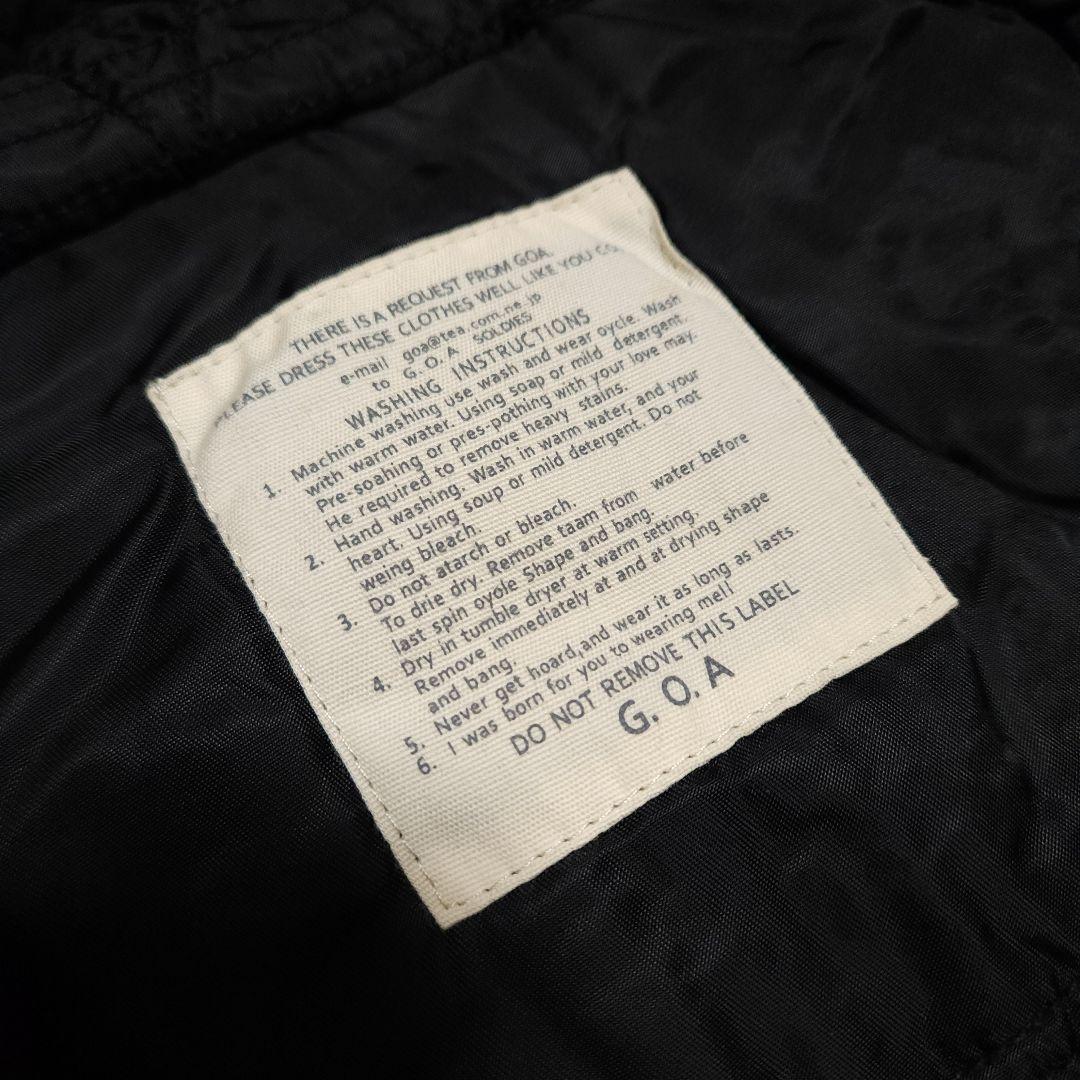 THERE IS A REQUEST FROM GOA.
PLEASE DRESS THESE CLOTHES WELL LIKE YOU
e-mail goa@tea.com.ne.jp
to G. O. A SOLDIES
WASHING INSTRUCTIONS
1. Machine washing use wash and wear oycle. Wash
with warm water. Using soap or mild detergent.
Pre-soahing or pres-pothing with your love may.
He required to remove heavy stains.
2. Hand washing. Wash in warm water, and your
heart. Using soup or mild detergent. Do not
weing bleach.
3. Do not atarch or bleach.
To drie dry. Remove taam from water before
last spin oyole Shape and bang.
4. Dry in tumble dryer at warm setting.
Remove immediately at and at drying shape
and bang.
5. Never get hoard,and wear it as long as lasts.
6. I was born for you to wearing me!!
DO NOT REMOVE THIS LABEL
G. O. A